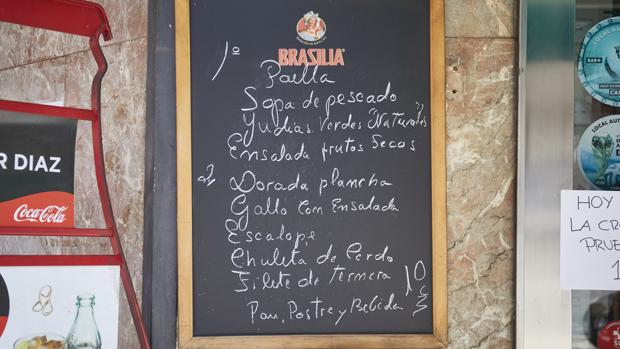 BRASILIA
1º
Paella
Sopa de pescado
Judias Verdes "Naturales"
Ensalada frutos Secos
2º
Dorada plancha
Gallo con Ensalada
Escalope
Chuleta de Cerdo
Filete de Ternera
10 €
Pan, Postre y Bebida
R DIAZ
Coca-Cola
LOCAL AUT
BAR
LOCAL AUT
HOY
LA CR
PRUE
1